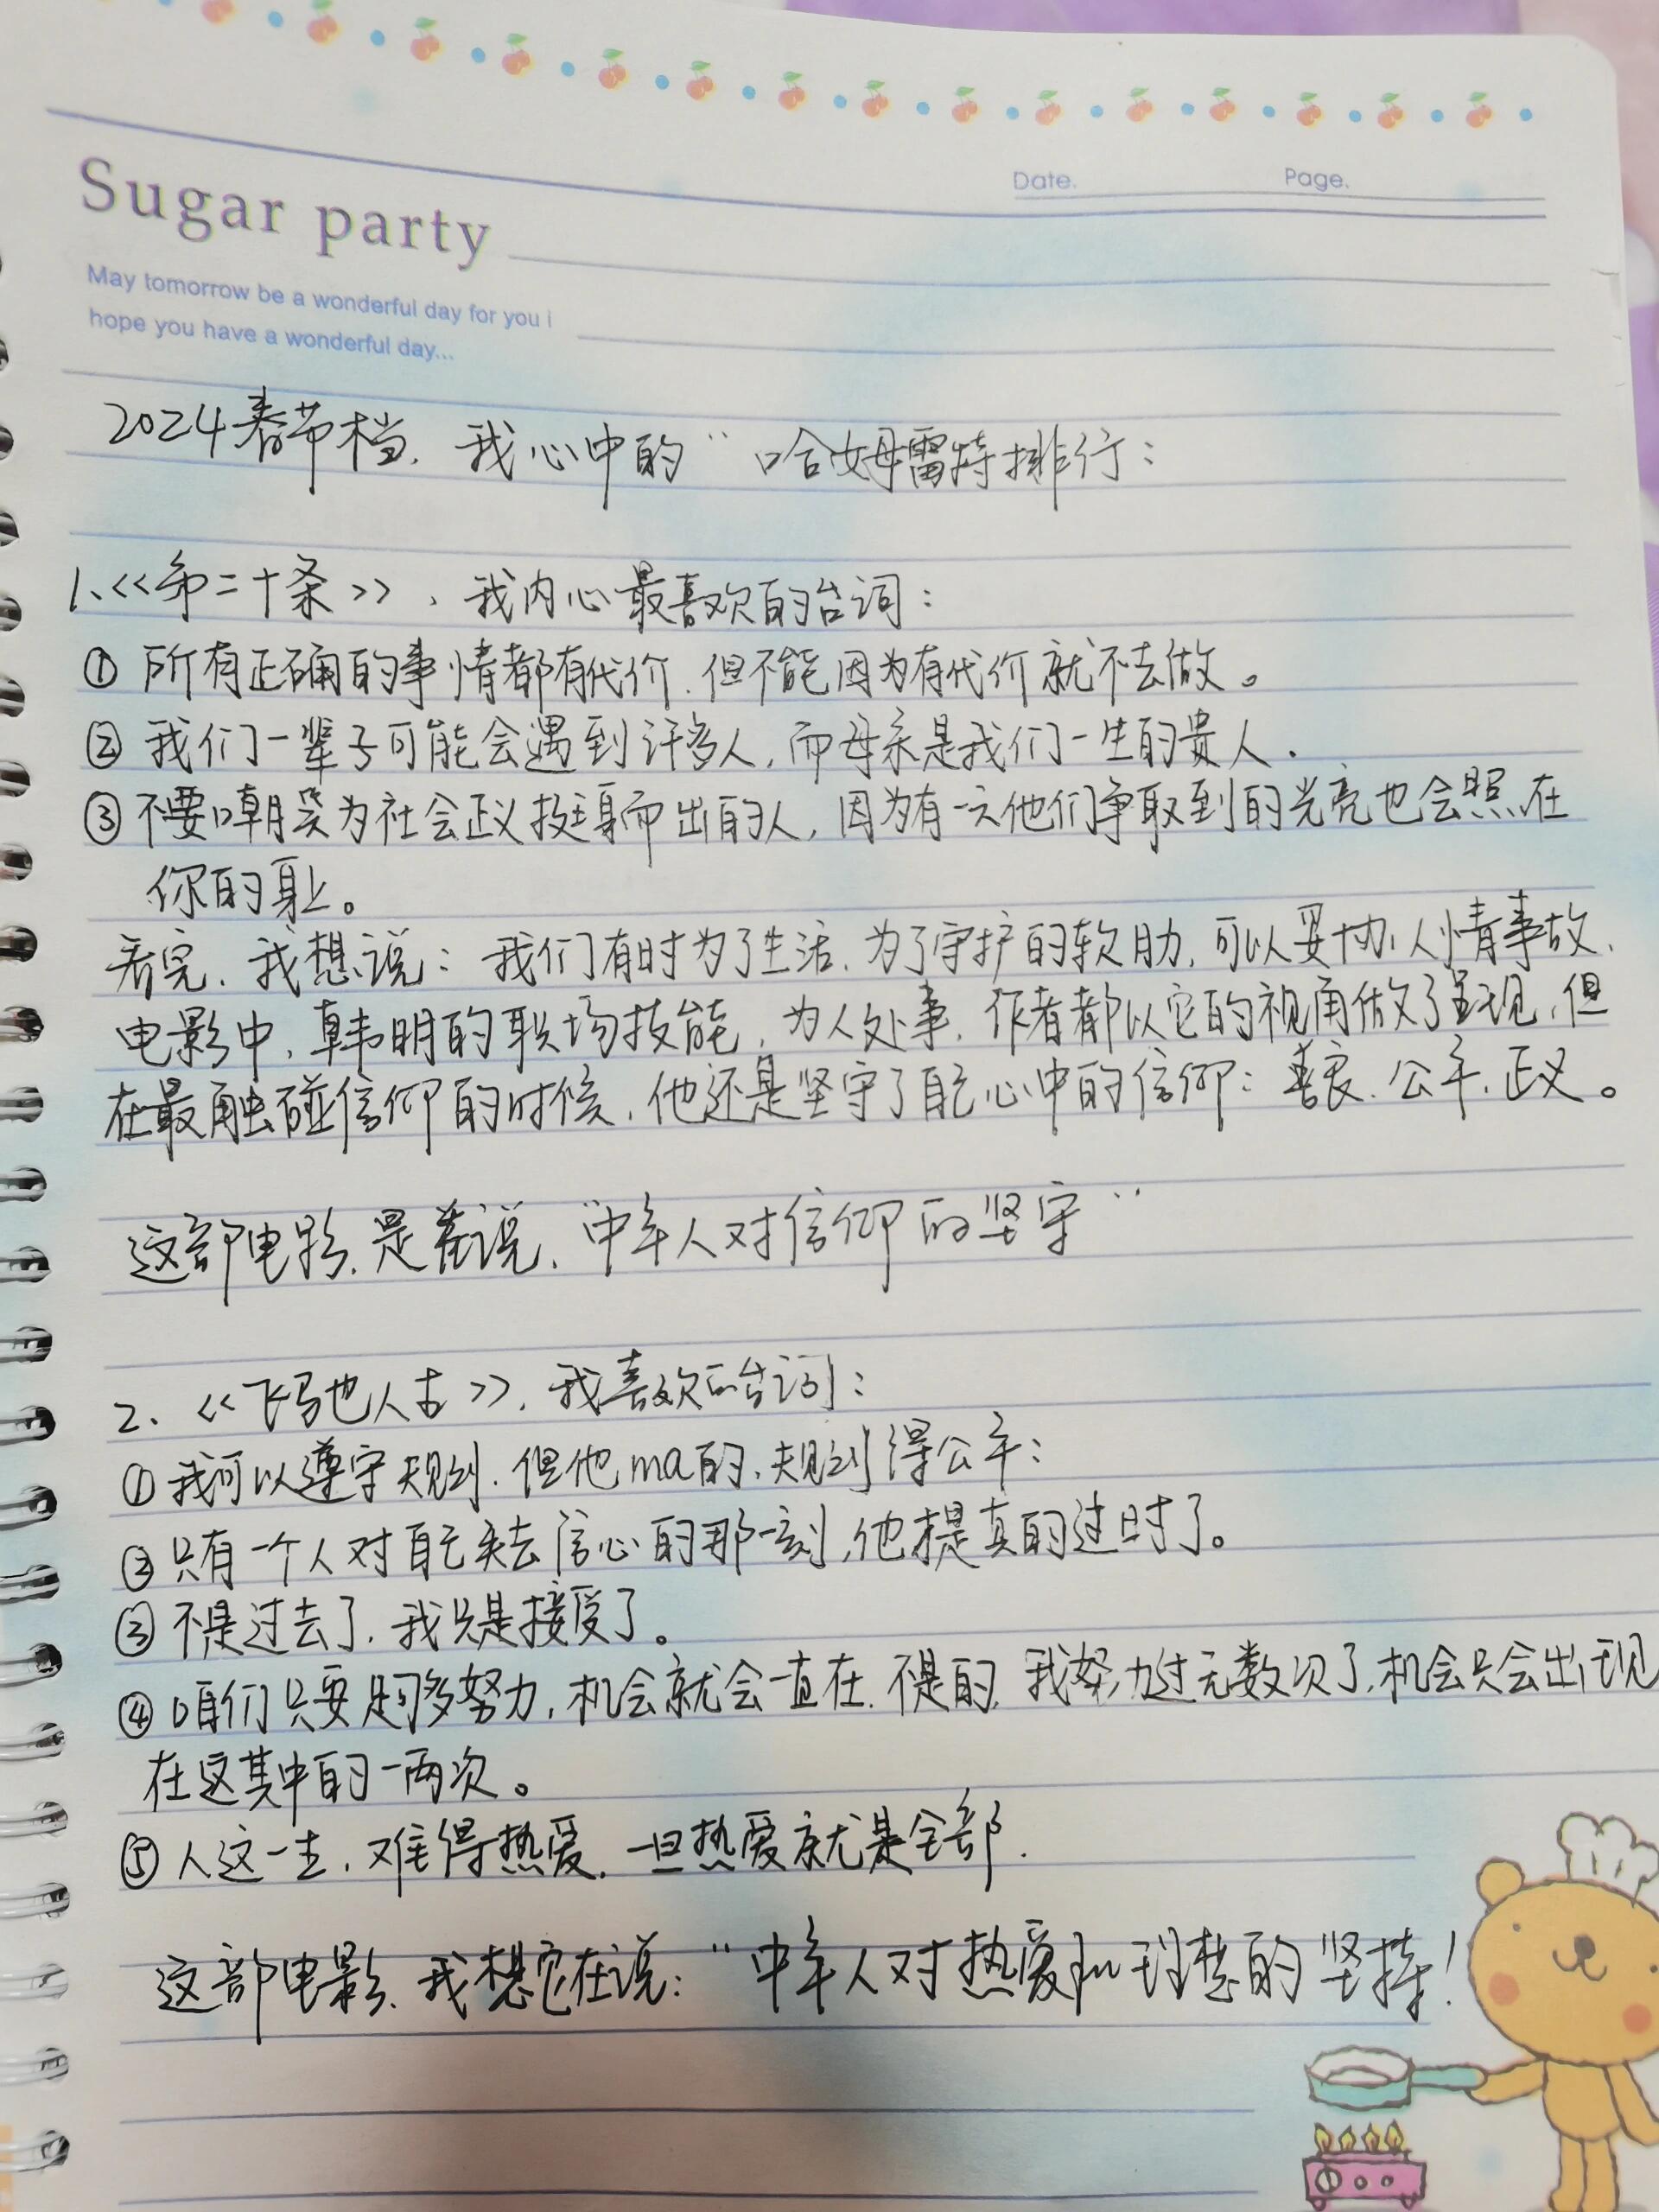 Date. Page.
Sugar party
May tomorrow be a wonderful day for you i
hope you have a wonderful day...
2024春节档，我心中的“哈姆雷特排行：
1、<<第二十条>>，我内心最喜欢的台词：
① 所有正确的事情都有代价，但不能因为有代价就不去做。
② 我们一辈子可能会遇到许多人，而母亲是我们一生的贵人.
③ 不要嘲笑为社会正义挺身而出的人，因为有一天他们争取到的光亮也会照在
你的身上。
看完，我想说：我们有时为了生活，为了守护的软肋，可以妥协人情事故，
电影中，韩明的职场技能，为人处事，作者都以它的视角做了呈现，但
在最触碰信仰的时候，他还是坚守了自己心中的信仰：善良、公平、正义。
这部电影，是在说，“中年人对信仰的坚守”
2、<<飞驰人生>>，我喜欢的台词：
① 我可以遵守规则，但他ma的，规则得公平；
② 只有一个人对自己失去信心的那一刻，他才是真的过时了。
③ 不是过去了，我只是接受了。
④ 咱们只要足够多努力，机会就会一直在，不是的，我努力过无数次了，机会只会出现
在这其中的一两次。
⑤ 人这一生，难得热爱，一旦热爱就是全部.
这部电影，我想它在说：“中年人对热爱和理想的坚持！